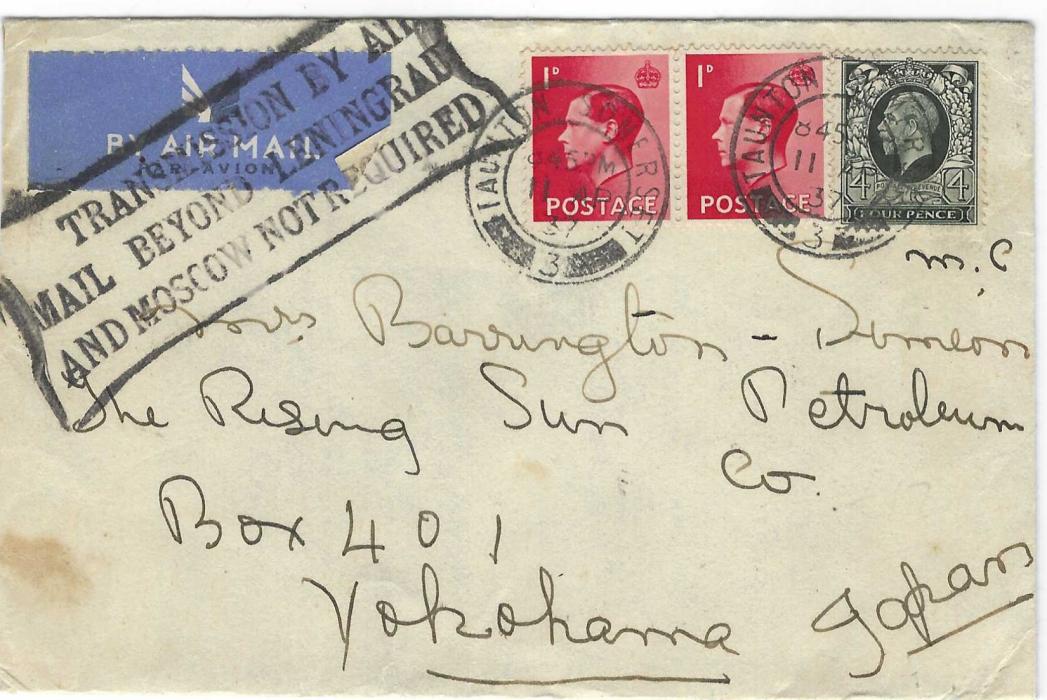 BY AIR MAIL
PAR AVION
TRANSMISSION BY AIR
MAIL BEYOND LENINGRAD
AND MOSCOW NOT REQUIRED
1D
POSTAGE
1D
POSTAGE
4 POSTAGE REVENUE 4
FOUR PENCE
TAUNTON SOMERSET
8 45 PM
11 AP
37
3
TAUNTON
8 45
11 AP
37
3
M.C
Mrs Barrington - Simeon
The Rising Sun Petroleum
Co.
Box 401
Yokohama Japan